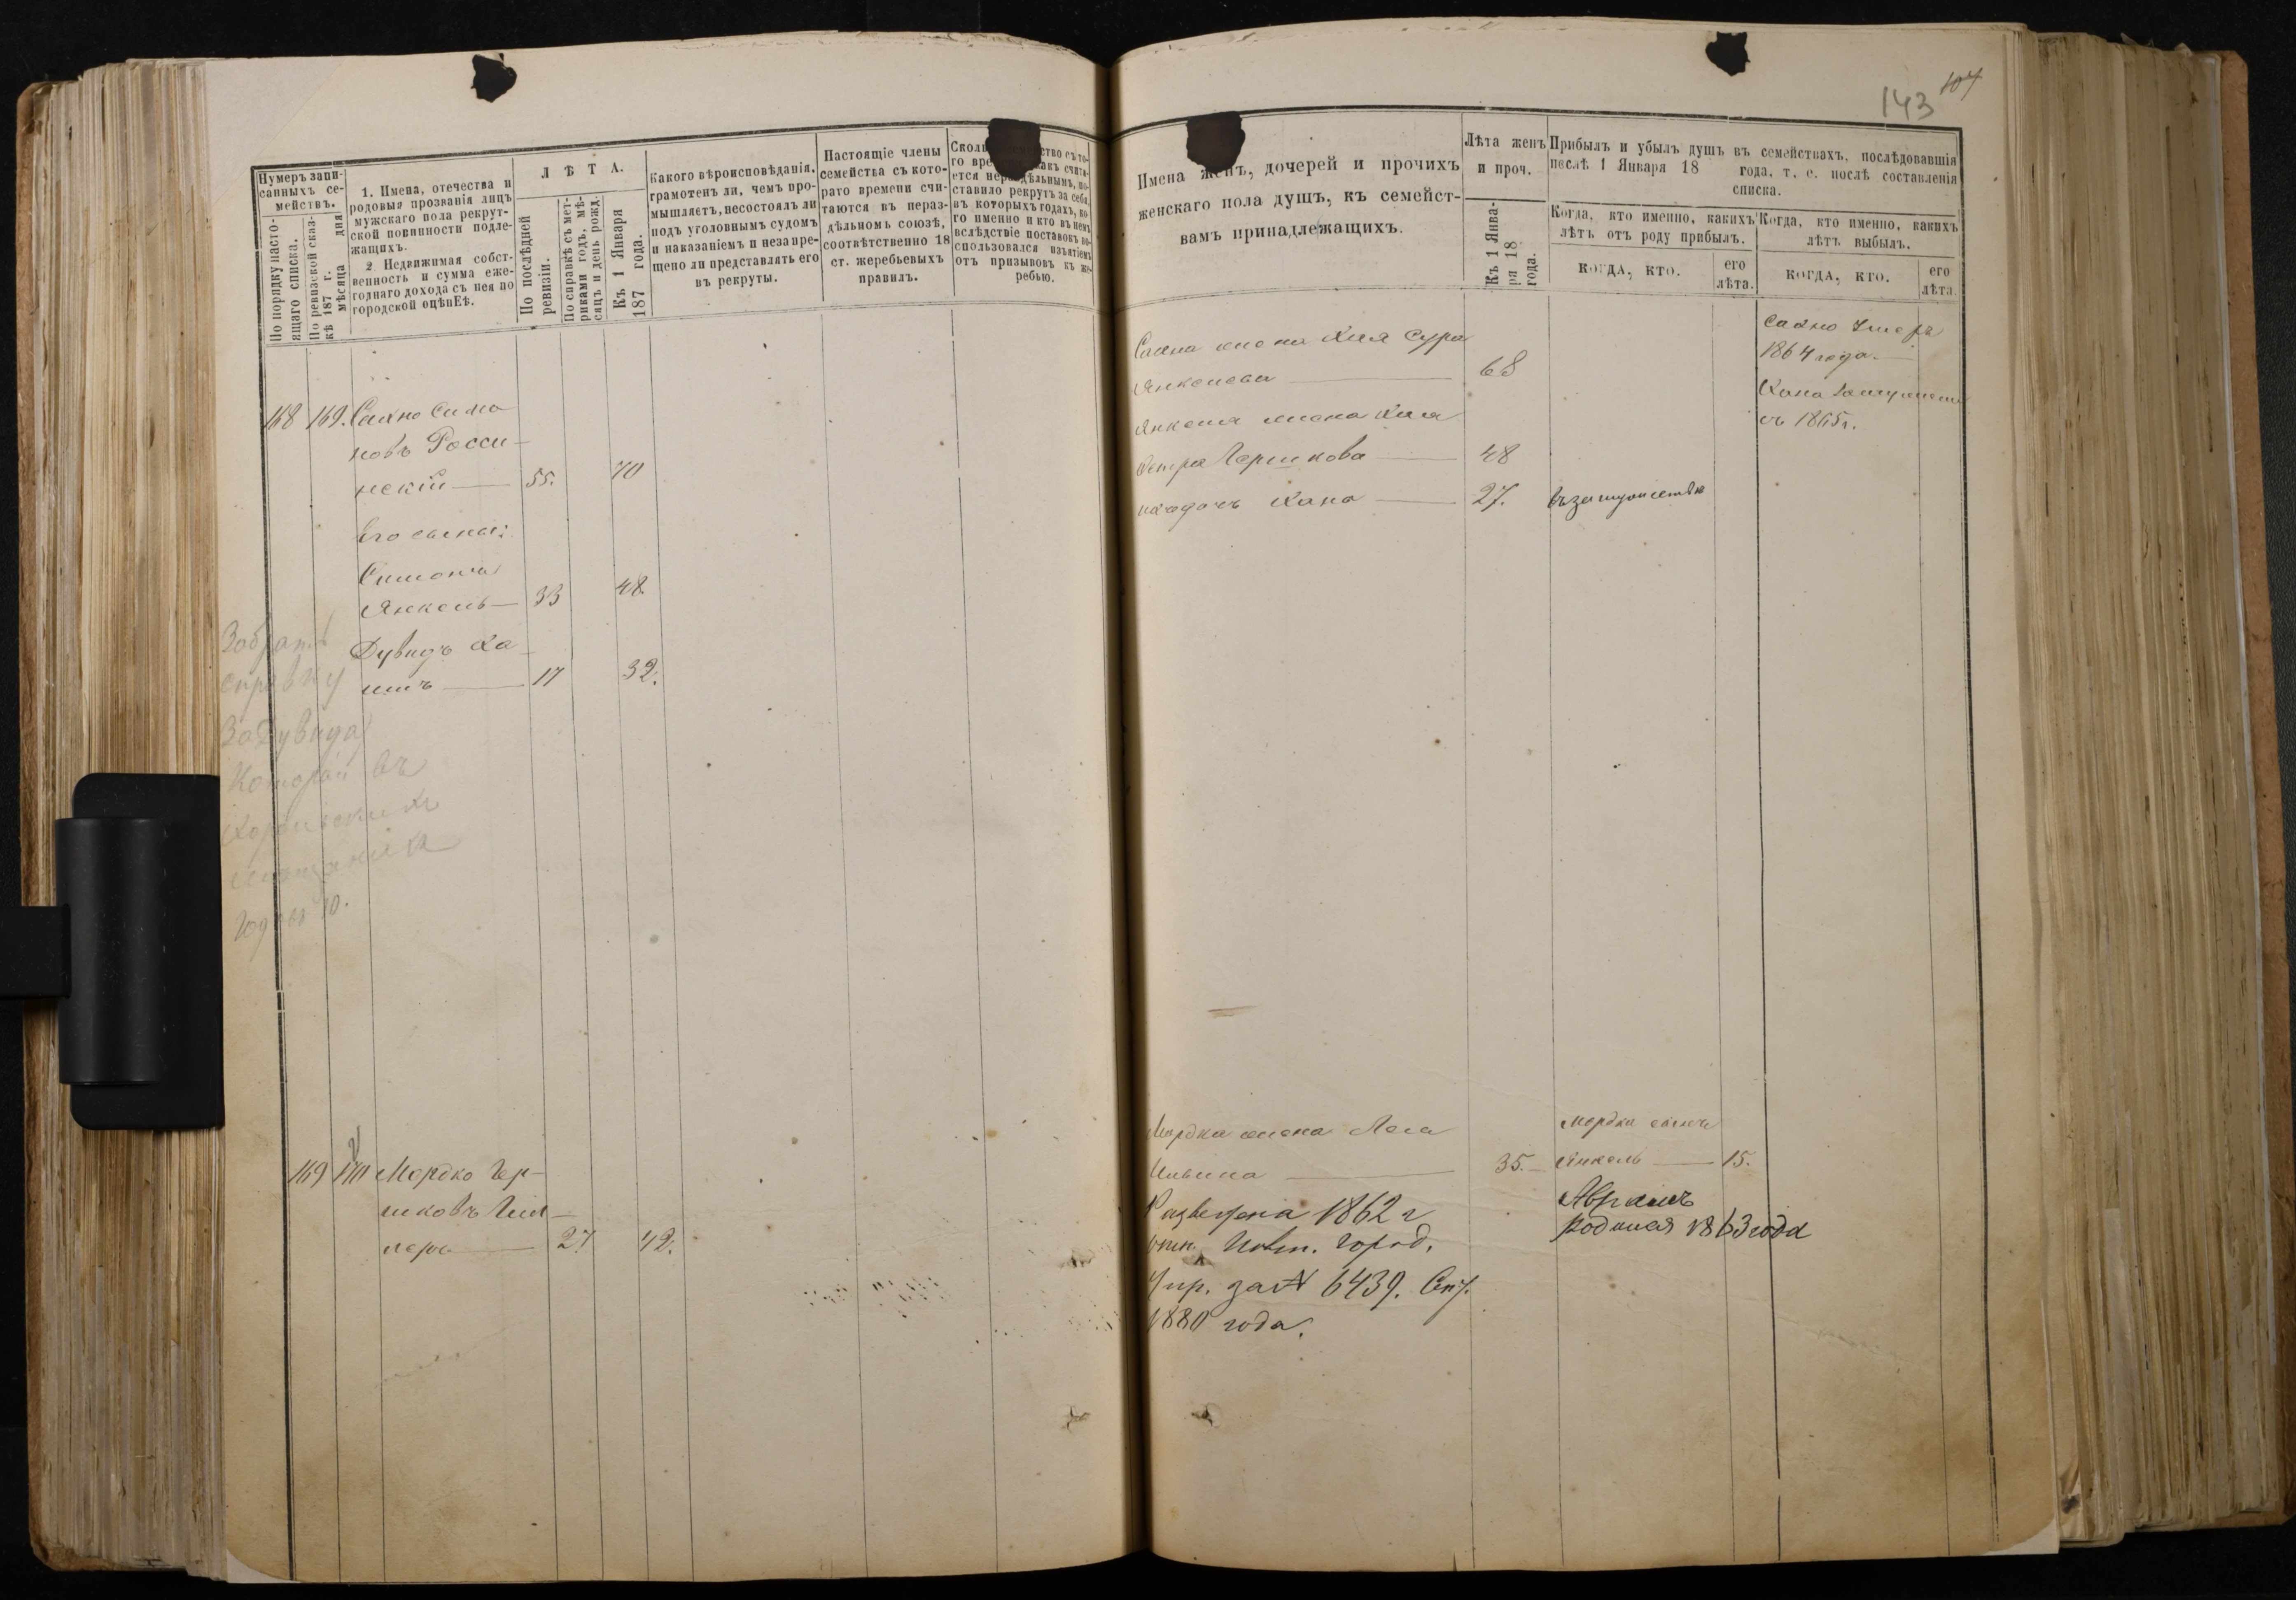 143 107
Нумеръ запи-
санныхъ се-
мействъ.
По порядку насто-
ящаго списка.
По ревизской сказ-
кѣ 187 г.
мѣсяца дня
1. Имена, отечества и
родовыя прозванія лицъ
мужскаго пола рекрут-
ской повинности подле-
жащихъ.
2 Недвижимая собст-
венность и сумма еже-
годнаго дохода съ нея по
городской оцѣнкѣ.
ЛѢТА.
По послѣдней
ревизіи.
По справкѣ съ мет-
риками годъ, мѣ-
сяцъ и день рожд.
Къ 1 Января
187 года.
Какого вѣроисповѣданія,
грамотенъ ли, чемъ про-
мышляетъ, несостоялъ ли
подъ уголовнымъ судомъ
и наказаніемъ и незапре-
щено ли представлять его
въ рекруты.
Настоящіе члены
семейства съ кото-
рато времени счи-
таются въ нераз-
дѣльномъ союзѣ,
соотвѣтственно 18
ст. жеребьевыхъ
правилъ.
ство съ то-
какъ счита-
ется нераздѣльнымъ, по-
ставило рекрутъ за себя,
въ которыхъ годахъ, ко-
го именно и кто въ немъ
вслѣдствіе поставокъ во-
спользовался изъятіемъ
отъ призывовъ къ же-
ребью.
168 169. Сахно Симо
новъ Росси-
нскій — 55. 70
Его сыны:
Симонъ
Янкель — 33 48.
Дувидъ Ха-
имъ — 17 32.
Забрать
справку
За Дувида
Который въ
169 170 Мордко Гер-
шковъ
27. 42.
Имена женъ, дочерей и прочихъ
женскаго пола душъ, къ семейст-
вамъ принадлежащихъ.
Лѣта женъ
и проч.
Къ 1 Янва-
ря 18
года.
Прибылъ и убылъ душъ въ семействахъ, послѣдовавшія
послѣ 1 Января 18 года, т. е. послѣ составленія
списка.
Когда, кто именно, какихъ
лѣтъ отъ роду прибылъ.
Когда, кто именно, какихъ
лѣтъ выбылъ.
КОГДА, КТО.
его
лѣта.
КОГДА, КТО.
его
лѣта.
Сахна жена Хая Сура
Янкелева — 68
Янкеля жена Хая
Гершкова — 48
Хана — 27. въ замужествѣ
Сахно умеръ
1864 года. —
Хана замужемъ
съ 1865 г.
Мордка жена Лея
— 35.
Разведена 1862 г
отн. Город.
Упр. за № 6439.
1880 года.
Мордка сынъ
Янкель — 15.
Абрамъ
родился 1863 года